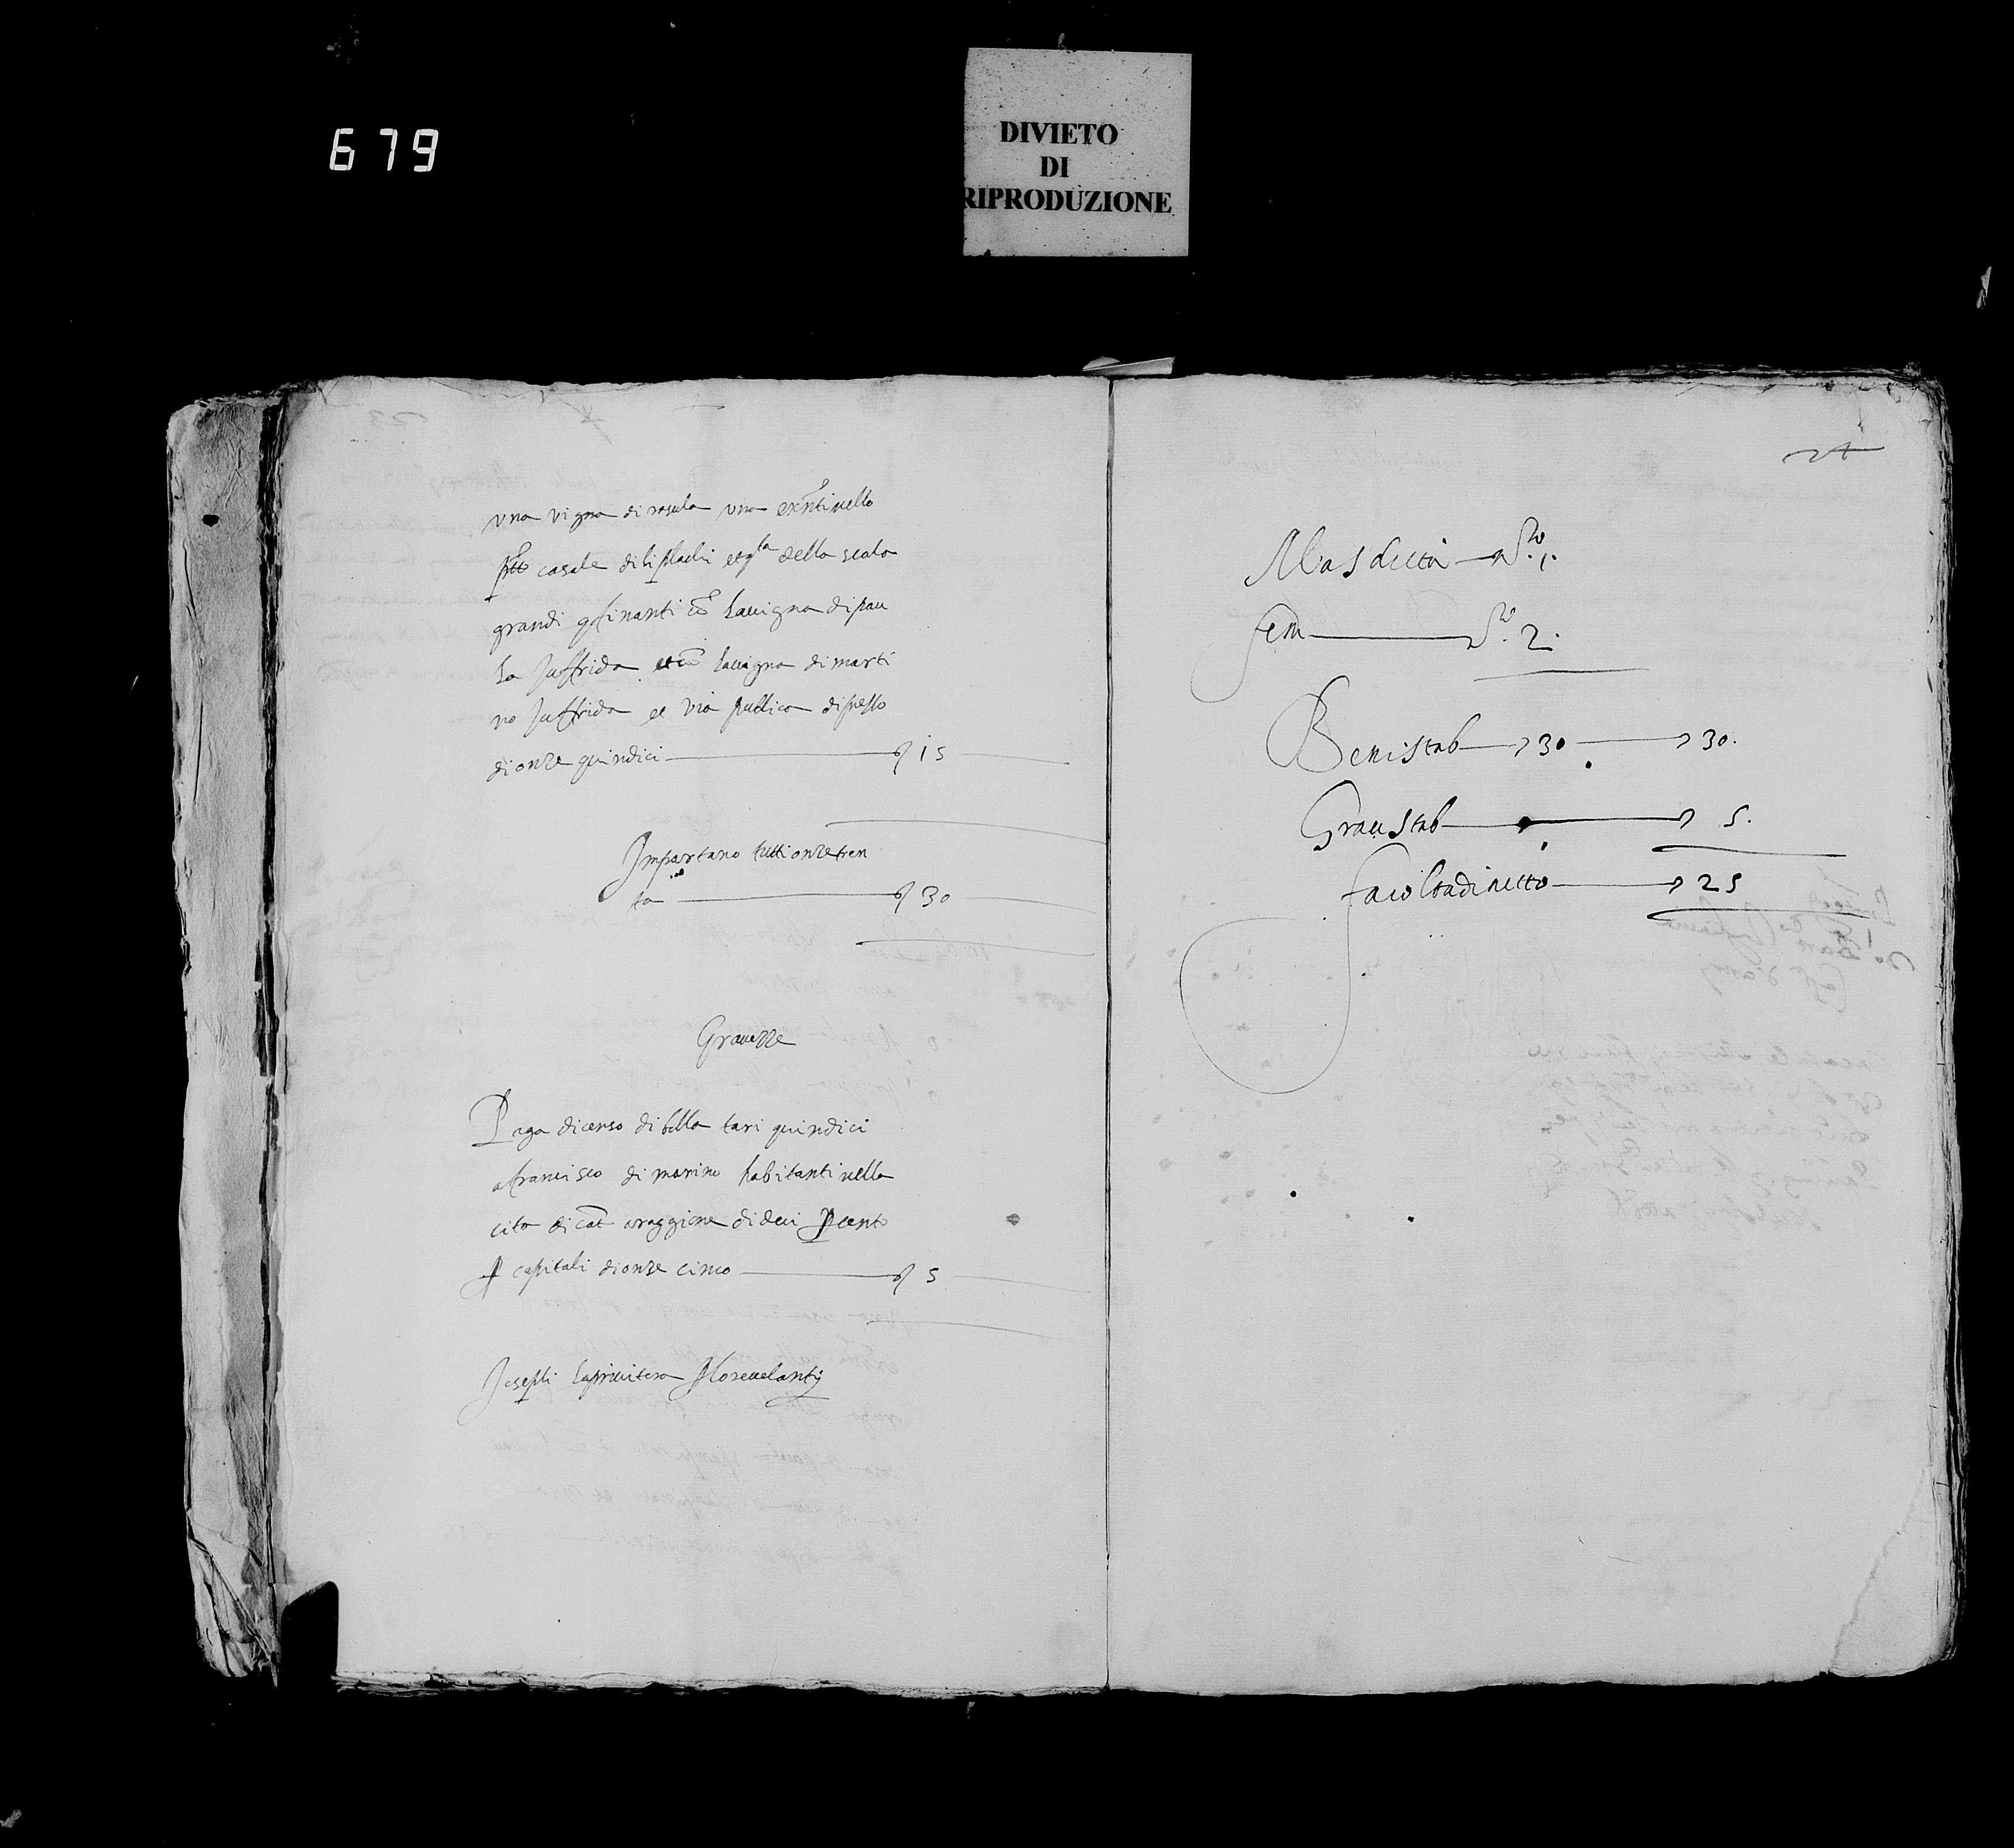 679
DIVIETO
DI
RIPRODUZIONE
una vigna di rasula una
casale di li della scala
grandi la vigna di pau
la Juffrida la vigna di marti
no Juffrida et via publica di prezzo
di onze quindici 15
Importano tutti onze tren
ta 30
Gravezze
Paga di censo di bolla tari quindici
a francisco di marino habitanti nella
cita di cat a raggione di deci per cento
capitali di onze cinco 5
Joseph lapriuitera
24
1.
fem 2.
Beni Stab 30 30.
Grau Stab 5.
facolta di netto 25